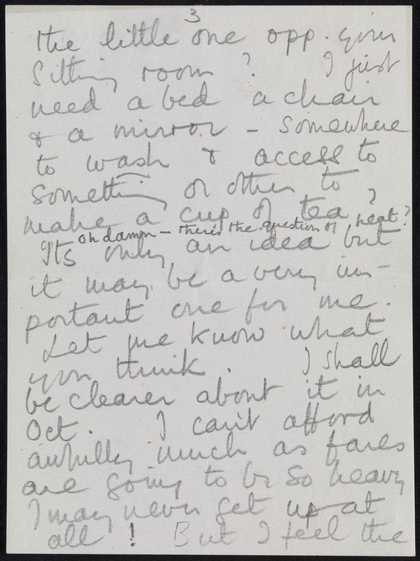 3
the little one opp. your
Sitting room? I just
need a bed a chair
& a mirror – somewhere
to wash & access to
something or other to
make a cup of tea,
oh damn – there's the question of heat?
Its only an idea but
it may be a very im-
portant one for me.
Let me know what
you think. I shall
be clearer about it in
Oct. I can't afford
awfully much as fares
are going to be so heavy
I may never get up at
all! But I feel the